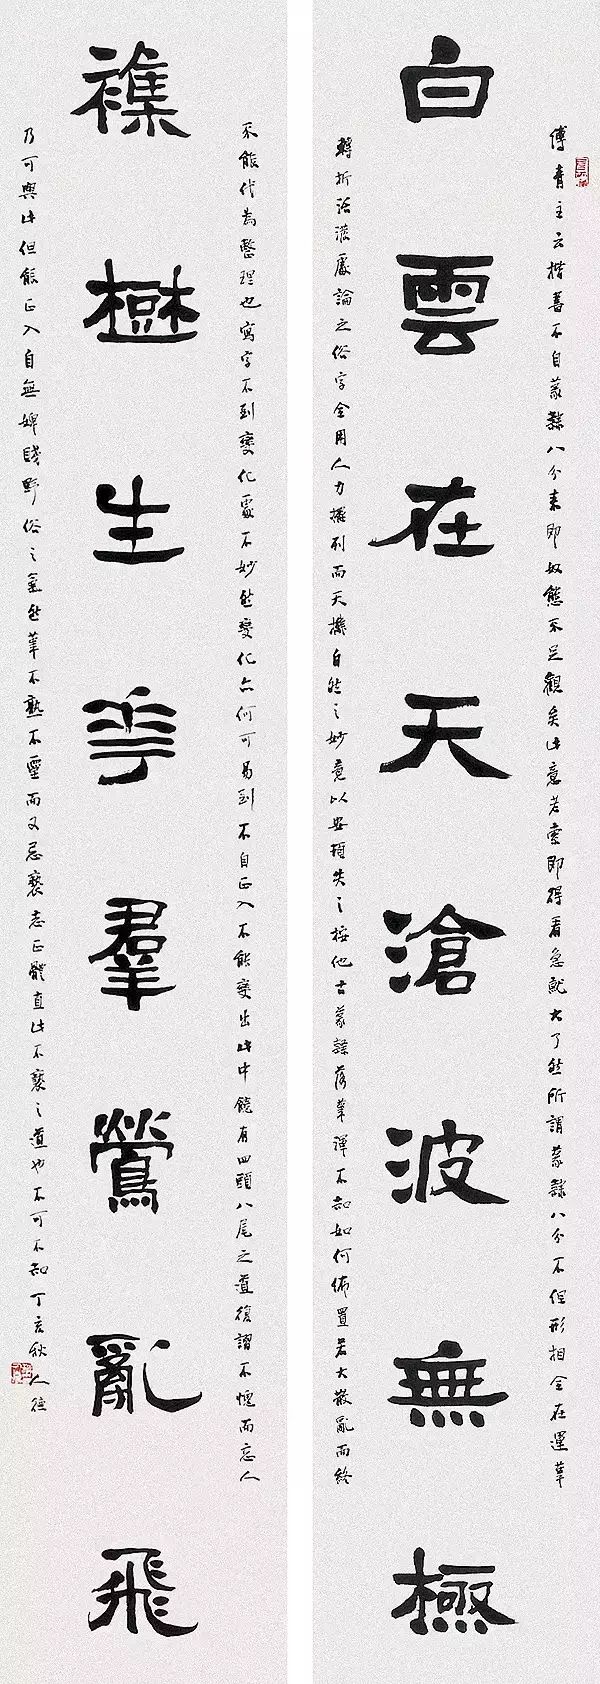 傅青主云楷書不自篆隸八分來即奴態不足觀矣此意老索即得看急就大了然所謂篆隸八分不但形相全在運筆
白雲在天滄波無極
轉折活潑處論之俗字全用人力擺列而天機自然之妙竟以安頓失之按他古篆隸落筆渾不知如何佈置若大散亂而終
不能代為整理也寫字不到變化處不妙然變化亦何可易到不自正入不能變出此中饒有四頭八尾之道復謂不愧而忘人
襍樹生華羣鶯亂飛
乃可與此但能正入自無婢賤野俗之氣然筆不熟不靈而又忌褻志正體直此不褻之道也不可不知丁亥秋人德